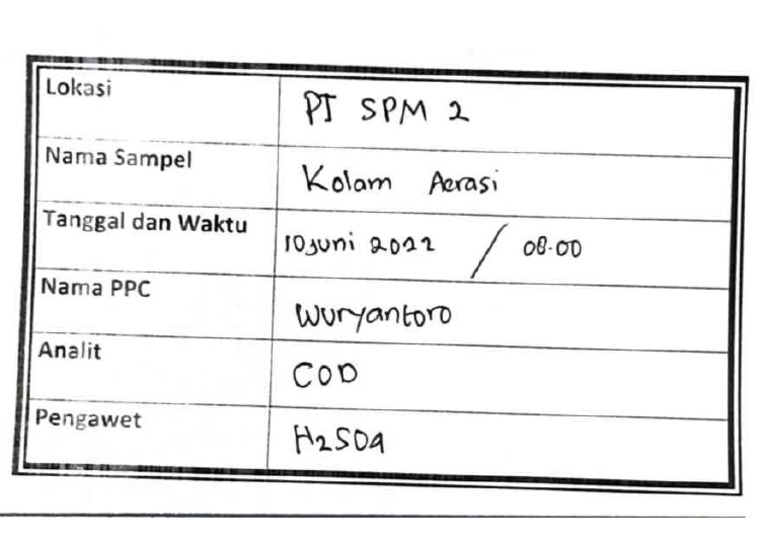 Lokasi PT SPM 2
Nama Sampel Kolam Aerasi
Tanggal dan Waktu 10 Juni 2022 / 08.00
Nama PPC Wuryantoro
Analit COD
Pengawet H2SO4